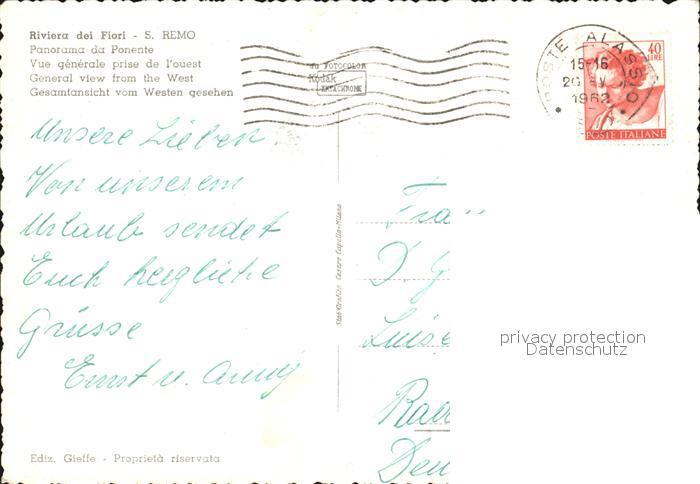 Riviera dei Fiori - S. REMO
Panorama da Ponente
Vue générale prise de l'ouest
General view from the West
Gesamtansicht vom Westen gesehen
da FOTOCOLOR
Kodak
EKTACHROME
POSTE ALASSIO
15-16
1962
40
LIRE
POSTE ITALIANE
Unsere Lieben
Von unserem
Urlaub sendet
Euch herzliche
Grüsse
Ernst u. Anny
Ediz. Gieffe - Proprietà riservata
privacy protection
Datenschutz